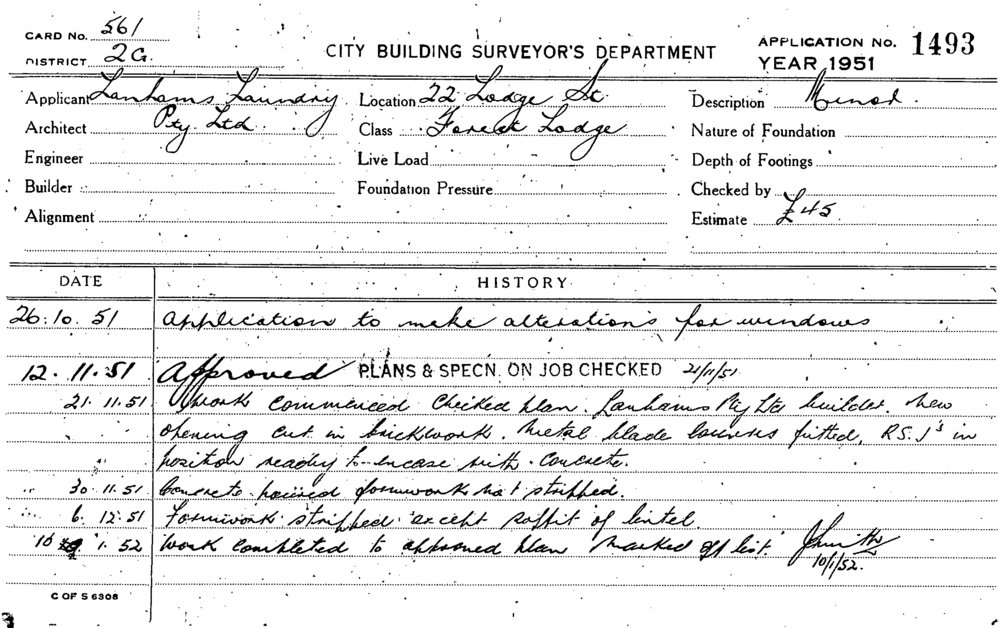 CARD No. 561
DISTRICT 2G.
CITY BUILDING SURVEYOR'S DEPARTMENT
APPLICATION No. 1493
YEAR 1951
Applicant Lanhams Laundry Location 22 Lodge St. Description Minor.
Architect Pty Ltd. Class Forest Lodge Nature of Foundation
Engineer Live Load Depth of Footings
Builder Foundation Pressure Checked by
Alignment Estimate £45
DATE HISTORY
26.10.51 Application to make alterations for windows
12.11.51 Approved PLANS & SPECN. ON JOB CHECKED 21/11/51
21.11.51 Work commenced checked plan. Lanhams Pty Ltd builder. New
opening cut in brickwork. Metal blade louvres fitted, R.S.J's in
position ready to encase with concrete.
30.11.51 Concrete poured formwork not stripped.
6.12.51 Formwork stripped except soffit of lintel.
10 1.52 Work completed to approved plan marked off list. JSmith
10/1/52.
C OF S 6308